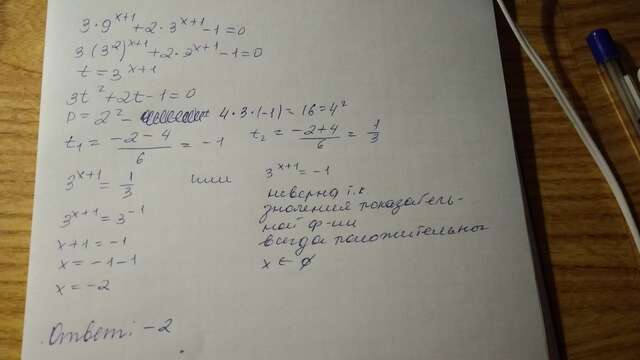 3·9^(x+1) + 2·3^(x+1) - 1 = 0
3(3^2)^(x+1) + 2·3^(x+1) - 1 = 0
t = 3^(x+1)
3t^2 + 2t - 1 = 0
D = 2^2 - 4·3·(-1) = 16 = 4^2
t₁ = (-2-4)/6 = -1 t₂ = (-2+4)/6 = 1/3
3^(x+1) = 1/3 или 3^(x+1) = -1
3^(x+1) = 3^(-1)
x+1 = -1
x = -1-1
x = -2
неверно т.к
значения показатель-
ной ф-ии
всегда положительно
x ∈ ∅
Ответ: -2